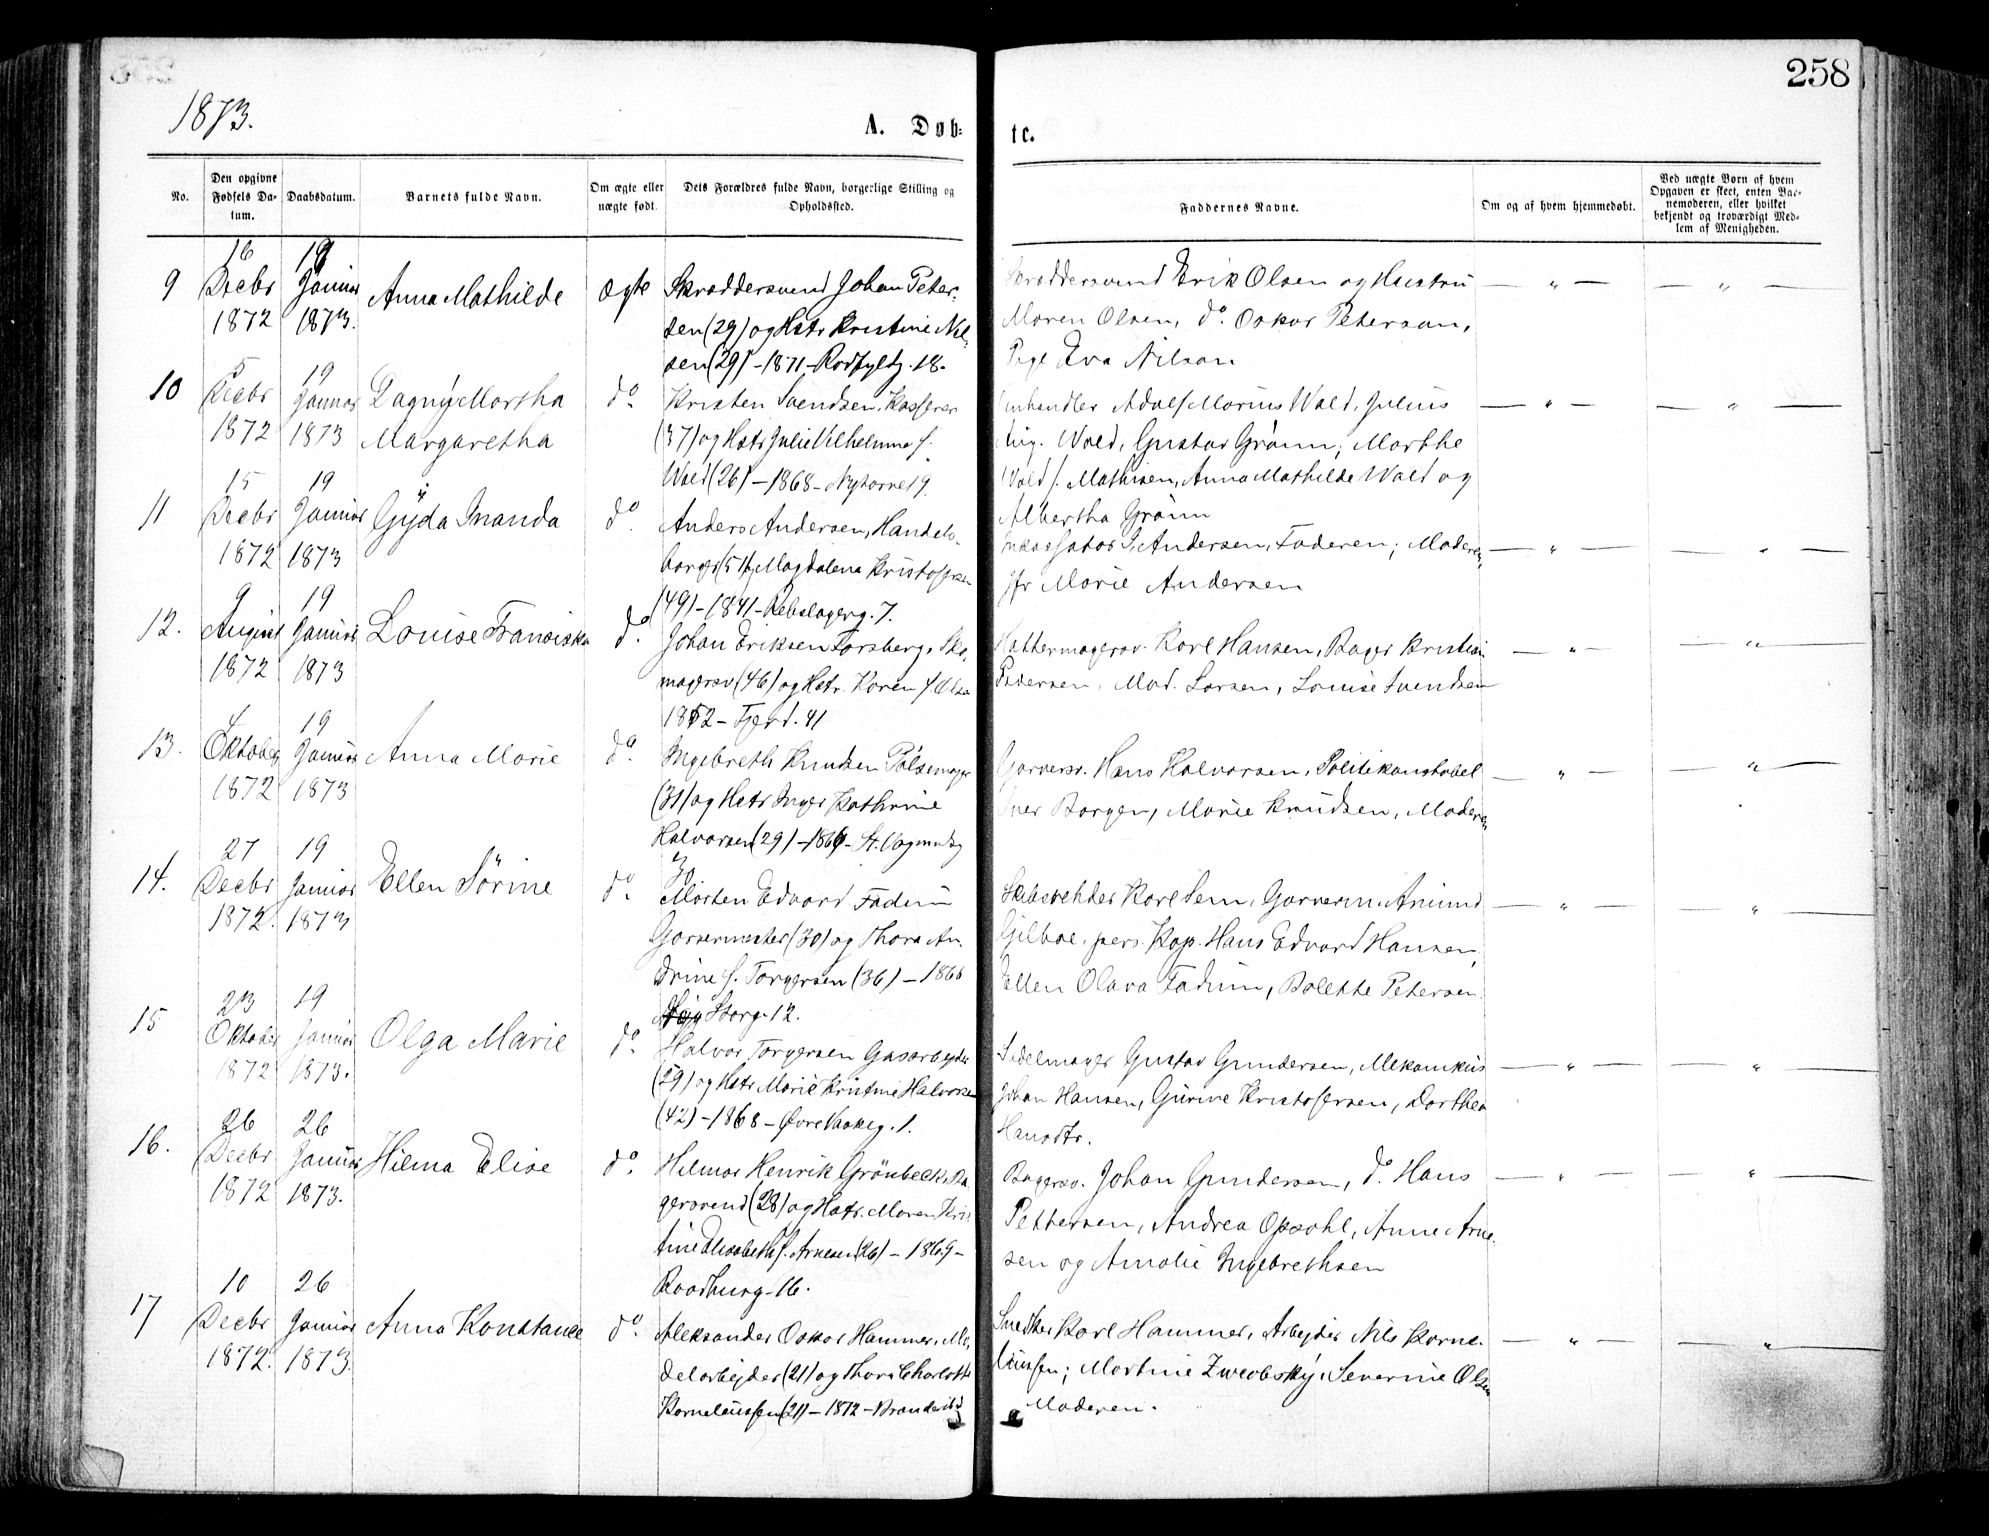 258
1873.
A. Døb-
te.
No.
Den opgivne Fødsels Da-tum.
Daabsdatum.
Barnets fulde Navn.
Om ægte eller uægte født.
Dets Forældres fulde Navn, borgerlige Stilling og Opholdssted.
Faddernes Navne.
Om og af hvem hjemmedøbt.
Ved uægte Børn af hvem Opgaven er skeet, enten Bar-nemoderen, eller hvilket bekjendt og troværdigt Med-lem af Menigheden.
9
16 Decbr 1872
19 Januar 1873.
Anna Mathilde
ægte
Skræddersvend Johan Peter-
sen (29) og Hstr Kristine Nil-
sen (29) - 1871 - Rodfyltg. 18.
Skræddersvend Erik Olsen og Hustru
Maren Olsen, do. Oskar Peterson,
Pige Eva Nilson
— " —
— " —
10
5 Decbr 1872
19 Januar 1873
Dagny Martha
Margaretha
do.
Kristen Svendsen, Kasserer
(37) og Hstr Julie Vilhelmine f.
Wold (26) - 1868 - Nytorvet 9.
Adolf Marius Wold, Julius
Wold, Gustav Grønn, Marthe
Wold f. Mathisen, Anna Mathilde Wold og
Albertha Grønn
— " —
— " —
11
15 Decbr 1872
19 Januar 1873
Gyda Amanda
do.
Anders Andersen, Handels-
borger (51) Magdalena Kristofersen
(49) - 1841 - Rebslagerg. 7.
Andersen, Faderen; Moderen,
Jfr Marie Andersen
— " —
— " —
12.
9 August 1872
19 Januar 1873
Louise Fransiska
do.
Johan Eriksen Forsberg, Sko-
magersv (46) og Hstr. Karen f. Olsen
1852 - Fjerd. 41
Hattemagersv. Karl Hansen, Bager Kristian
Pedersen, Mad. Larsen, Louise Svendsen
— " —
— " —
13.
4 Oktober 1872
19 Januar 1873
Anna Marie
do.
Ingebreth Knudsen Pølsemager
(31) og Hstr Inger Kathrine
Halvorsen (29) - St. Vognmdg
30
Garversv. Hans Halvorsen, Politikonstabel
Iver Borgen, Marie Knudsen, Moderen
— " —
— " —
14.
27 Decbr 1872.
19 Januar 1873
Ellen Sørine
do.
Morten Edvard Fadum
Garvermester (30) og Thora An-
drine f. Torgersen (36) - 1866
Storg. 12.
Skibsrehder Karl Sem, Garverm. Amund
Gilboe, pers. Kap. Hans Edvard Hansen,
Ellen Olava Fadum, Bolette Petersen.
— " —
— " —
15
23 Oktober 1872
19 Januar 1873.
Olga Marie
do.
Halvor Torgersen Gasarbejder
(29) og Hstr Marie Kristine Halvorsen
(42) - 1868 - Øvre Vaskeg. 1.
Sadelmager Gustav Gundersen, Mekanikus
Johan Hansen, Gurine Kristofersen, Dorthea
Hansdtr.
— " —
— " —
16.
26 Decbr 1872
26 Januar 1873.
Hilma Elise
do.
Hilmar Henrik Grønbeck, Ba-
gersvend (28) og Hstr. Maren Kris-
tine Elisabeth f. Arnesen (26) - 1869 -
Raadhusg. 16.
Bagersv. Johan Gundersen, do. Hans
Pettersen, Andrea Opsahl, Anne Arne-
sen og Amalie Ingebrethsen
— " —
— " —
17
10 Decbr 1872.
26 Januar 1873.
Anna Konstance
do.
Aleksander Oskar Hammer, Mø-
belarbejder (21) og Thora Charlotte
Korneliussen (21) - 1872 -
Snedker Karl Hammer, Arbejder Nils Korne-
liussen; Martine Zweobsky, Severine Olsen
Moderen.
— " —
— " —